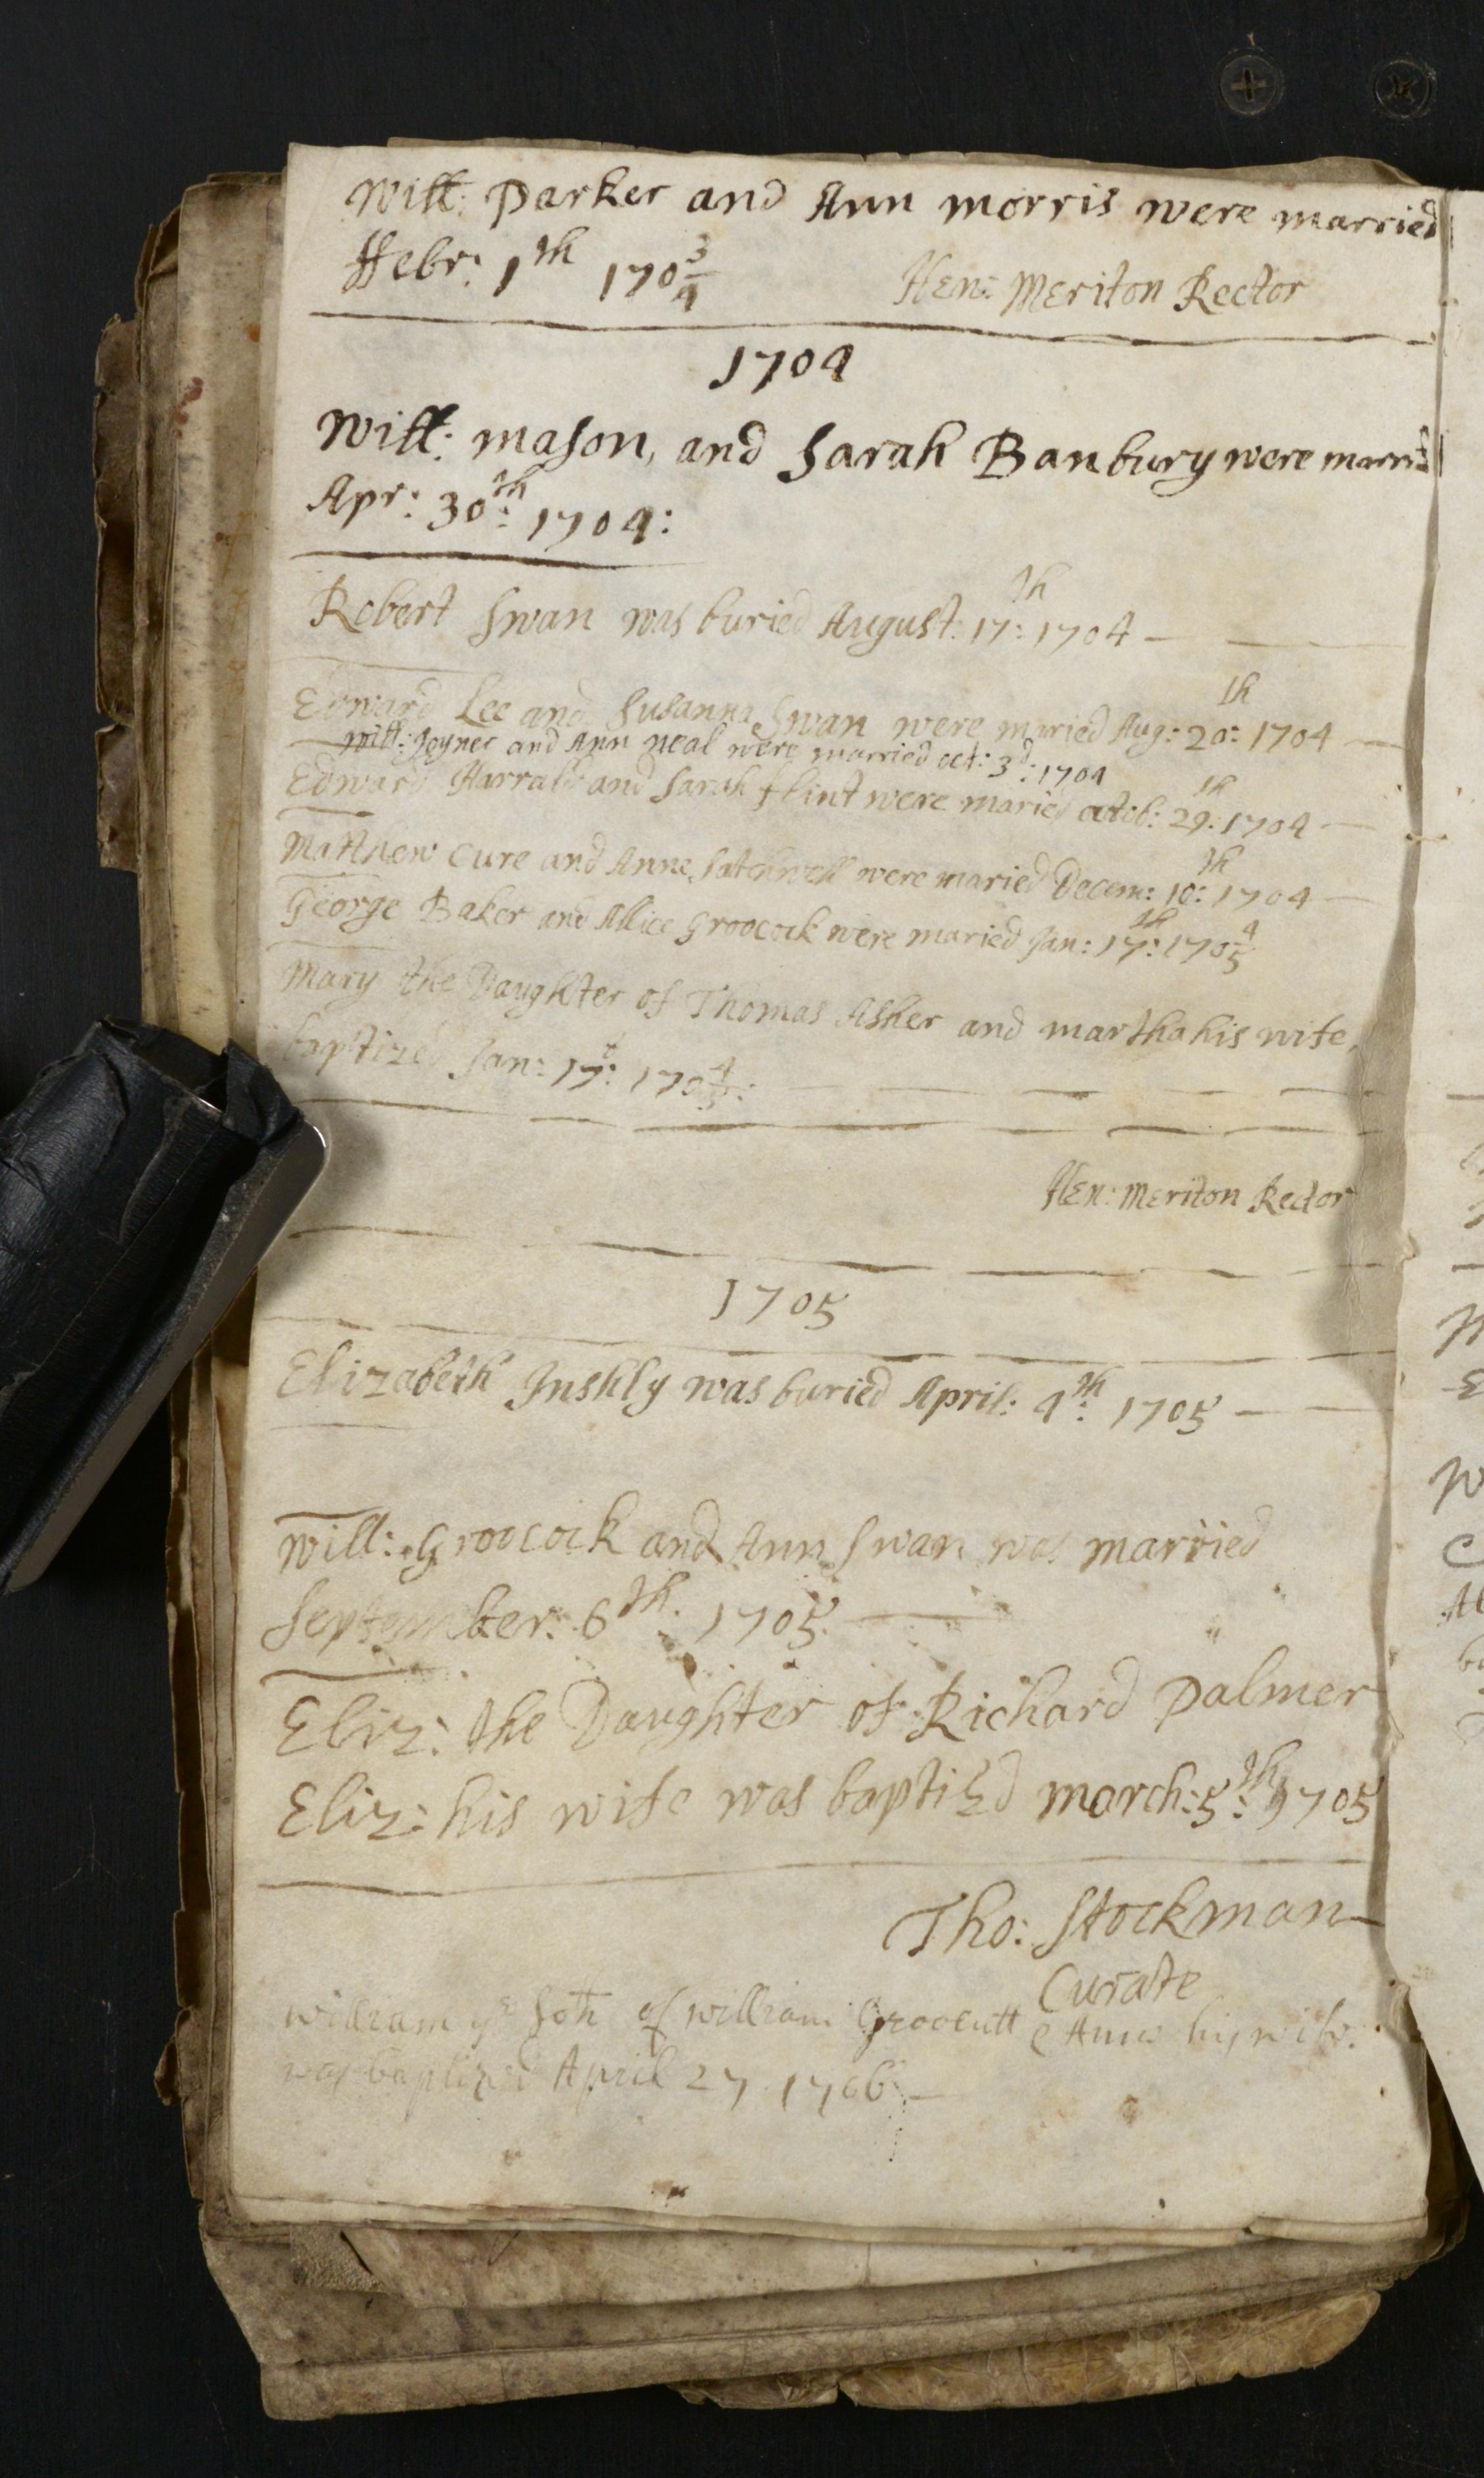 Will: Parker and Ann morris were married
ffebr: 1th 170¾
Hen: Meriton Rector
1704
Will: mason, and Sarah Banbury were married
Apr: 30th: 1704:
Robert Swan was buried August: 17th: 1704 —
Edward Lee and Susanna Swan were maried Aug: 20th: 1704 —
Will: Joyner and Ann neal were married oct: 3d: 1704
Edward Harrald and Sarah flint were maried octob: 29th: 1704 —
Matthew Cure and Anne Satchwell were maried Decem: 10th: 1704 —
George Baker and Allice Groocock were maried Jan: 17th: 170⅘
Mary the Daughter of Thomas Asher and martha his wife,
baptized Jan: 17t: 170⅘:
Hen: Meriton Rector
1705
Elizabeth Inshly was buried April: 4th: 1705 —
Will: Groocock and Ann Swan was married
September: 6th: 1705. —
Eliz: the Daughter of Richard Palmer
Eliz: his wife was baptizd march: 5th: 1705
Tho: Stockman
Curate
William ye Son of William Groocutt & Ann his wife.
was baptized April 27 1706 —